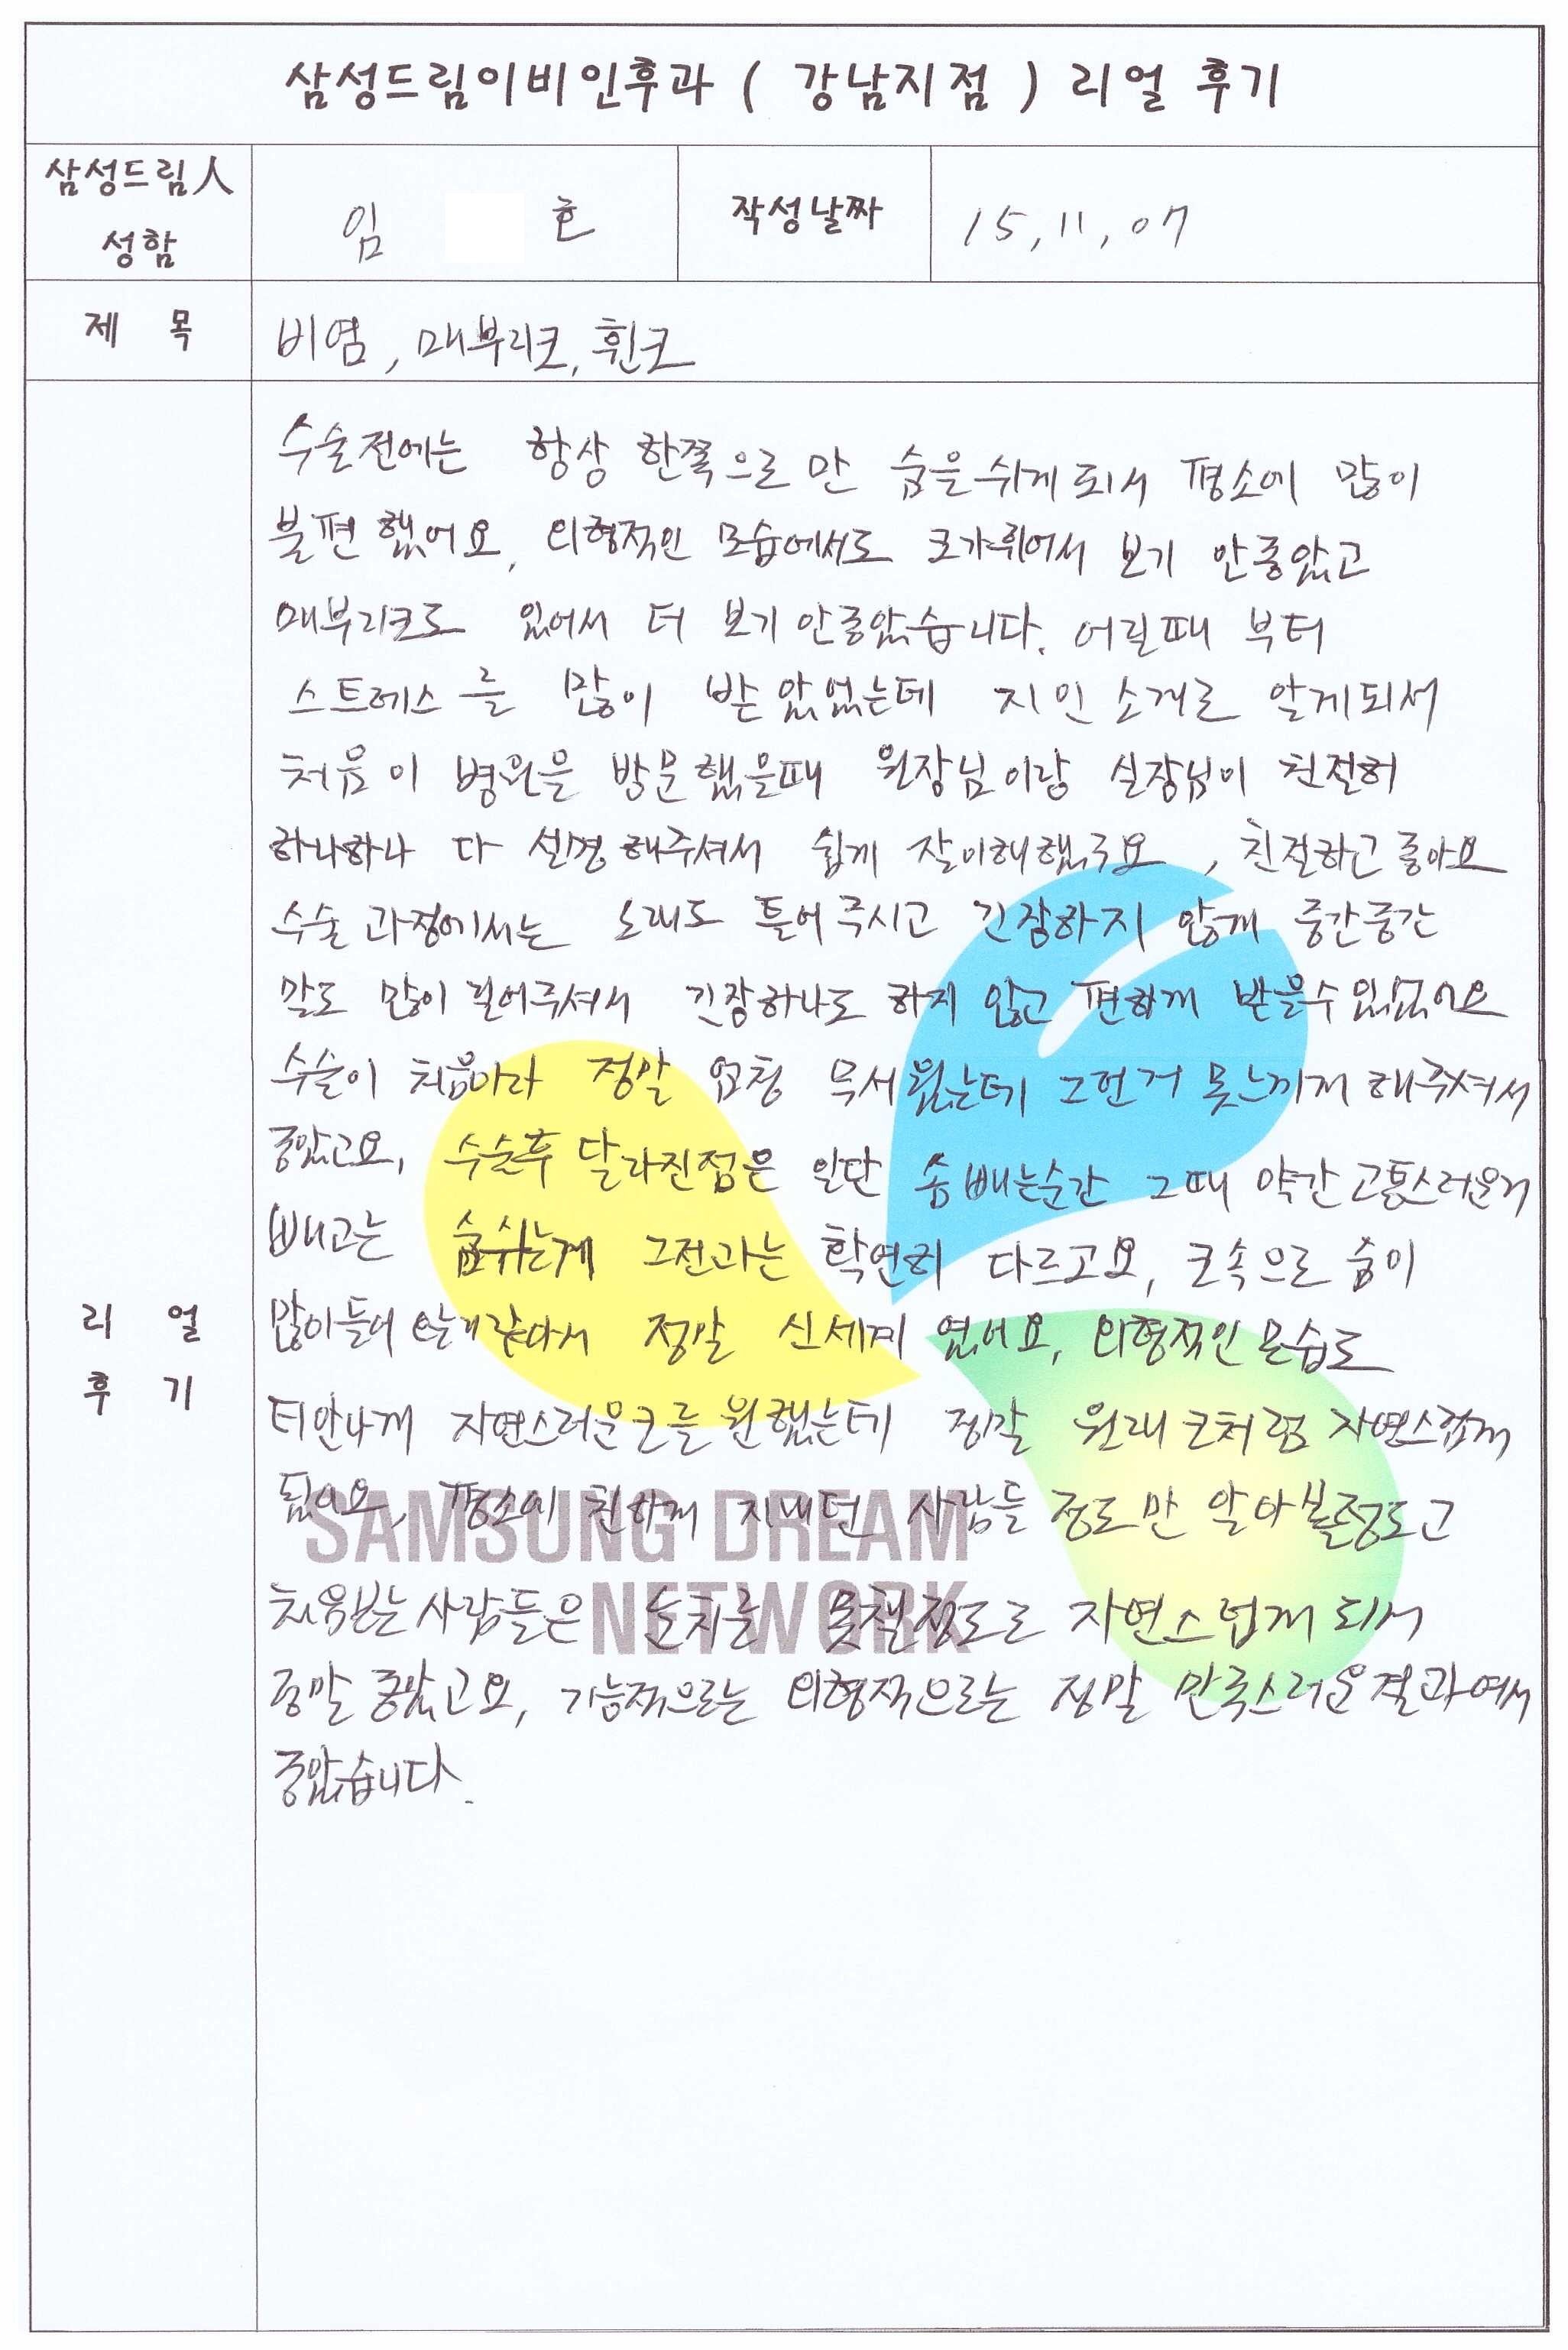 삼성드림이비인후과 ( 강남지점 ) 리얼 후기
삼성드림人
성함
임 호
작성날짜
15, 11, 07
제 목
비염, 매부리코, 휜코
리 얼
후 기
수술전에는 항상 한쪽으로 만 숨을쉬게 되서 평소에 많이
불편 했어요, 외형적인 모습에서도 코가휘어서 보기 안좋았고
매부리코도 있어서 더 보기 안좋았습니다. 어릴때 부터
스트레스 를 많이 받 았었는데 지인 소개로 알게되서
처음 이 병원을 방문했을때 원장님이랑 실장님이 친절히
하나하나 다 설명 해주셔서 쉽게 잘이해했구요 , 친절하고 좋아요
수술 과정에서는 노래도 틀어 주시고 긴장하지 않게 중간중간
말도 많이 걸어주셔서 긴장하나도 하지 않고 편하게 받을수 있었어요
수술이 처음이라 정말 엄청 무서웠는데 그런거 못느끼게 해주셔서
좋았고요, 수술후 달라진점은 일단 솜빼는순간 그때 약간 고통스러운거
빼고는 숨쉬는게 그전과는 확연히 다르고요, 코속으로 숨이
많이들어 오는거같아서 정말 신세계 였어요, 외형적인 모습도
티안나게 자연스러운코를 원했는데 정말 원래 코처럼 자연스럽게
됬어요, 평소에 친하게 지내던 사람들 정도만 알아볼정도고
처음보는 사람들은 눈치를 못챌정도로 자연스럽게 되서
정말 좋았고요, 기능적으로는 외형적으로는 정말 만족스러운결과여서
좋았습니다.
SAMSUNG DREAM
NETWORK